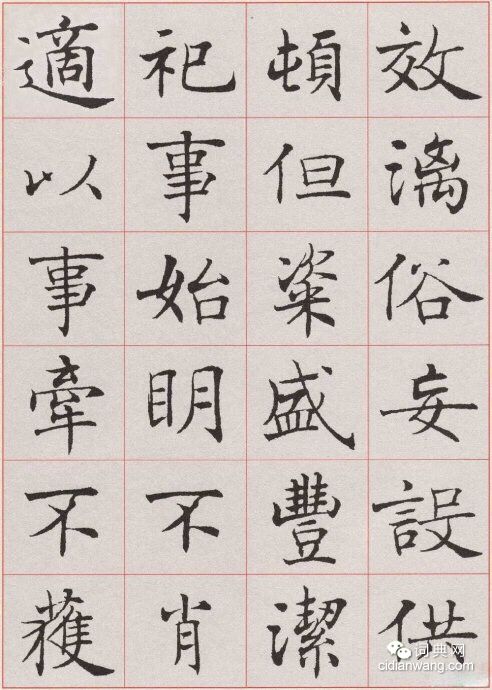 效漓俗妄設供
頓但粢盛豐潔
祀事始眀不肖
適以事牽不獲
词典网
cidianwang.com